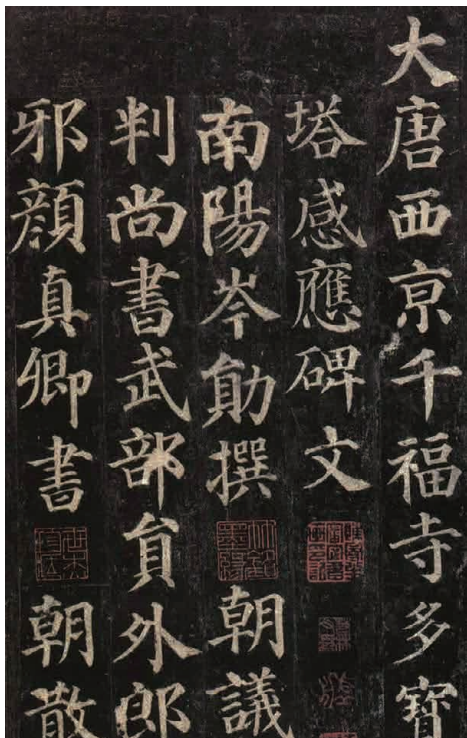 大唐西京千福寺多寶
塔感應碑文
南陽岑勛撰朝議
判尚書武部員外郎
邪顏真卿書朝散